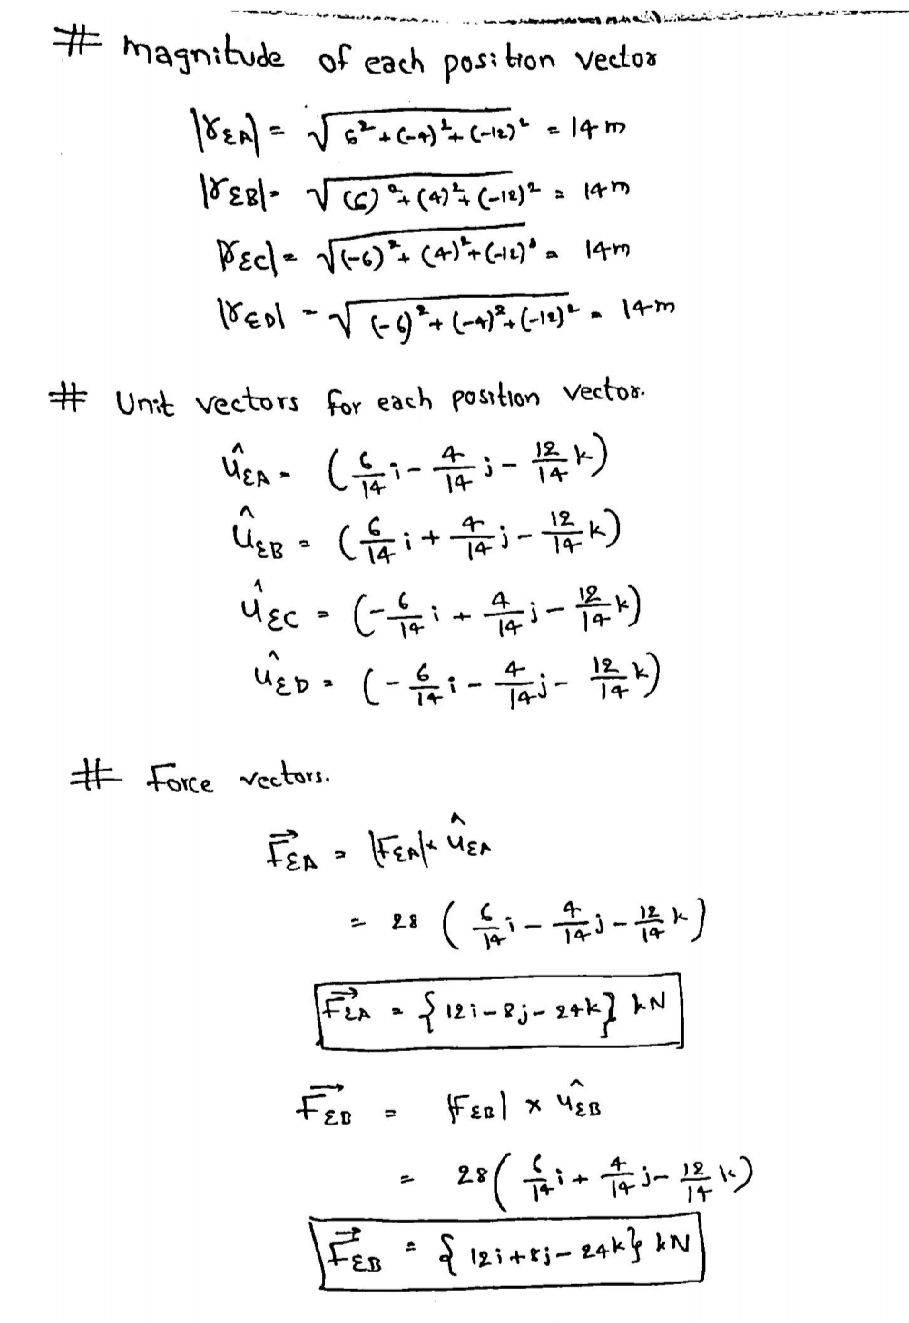 # magnitude of each position vector
|r_EA| = √(6² + (-4)² + (-12)²) = 14 m
|r_EB| = √((6)² + (4)² + (-12)²) = 14 m
|r_EC| = √((-6)² + (4)² + (-12)²) = 14 m
|r_ED| = √((-6)² + (-4)² + (-12)²) = 14 m
# Unit vectors for each position vector.
û_EA = (6/14 i - 4/14 j - 12/14 k)
û_EB = (6/14 i + 4/14 j - 12/14 k)
û_EC = (-6/14 i + 4/14 j - 12/14 k)
û_ED = (-6/14 i - 4/14 j - 12/14 k)
# Force vectors.
F⃗_EA = |F_EA| × û_EA
= 28 (6/14 i - 4/14 j - 12/14 k)
F⃗_EA = {12i - 8j - 24k} kN
F⃗_EB = |F_EB| × û_EB
= 28 (6/14 i + 4/14 j - 12/14 k)
F⃗_EB = {12i + 8j - 24k} kN